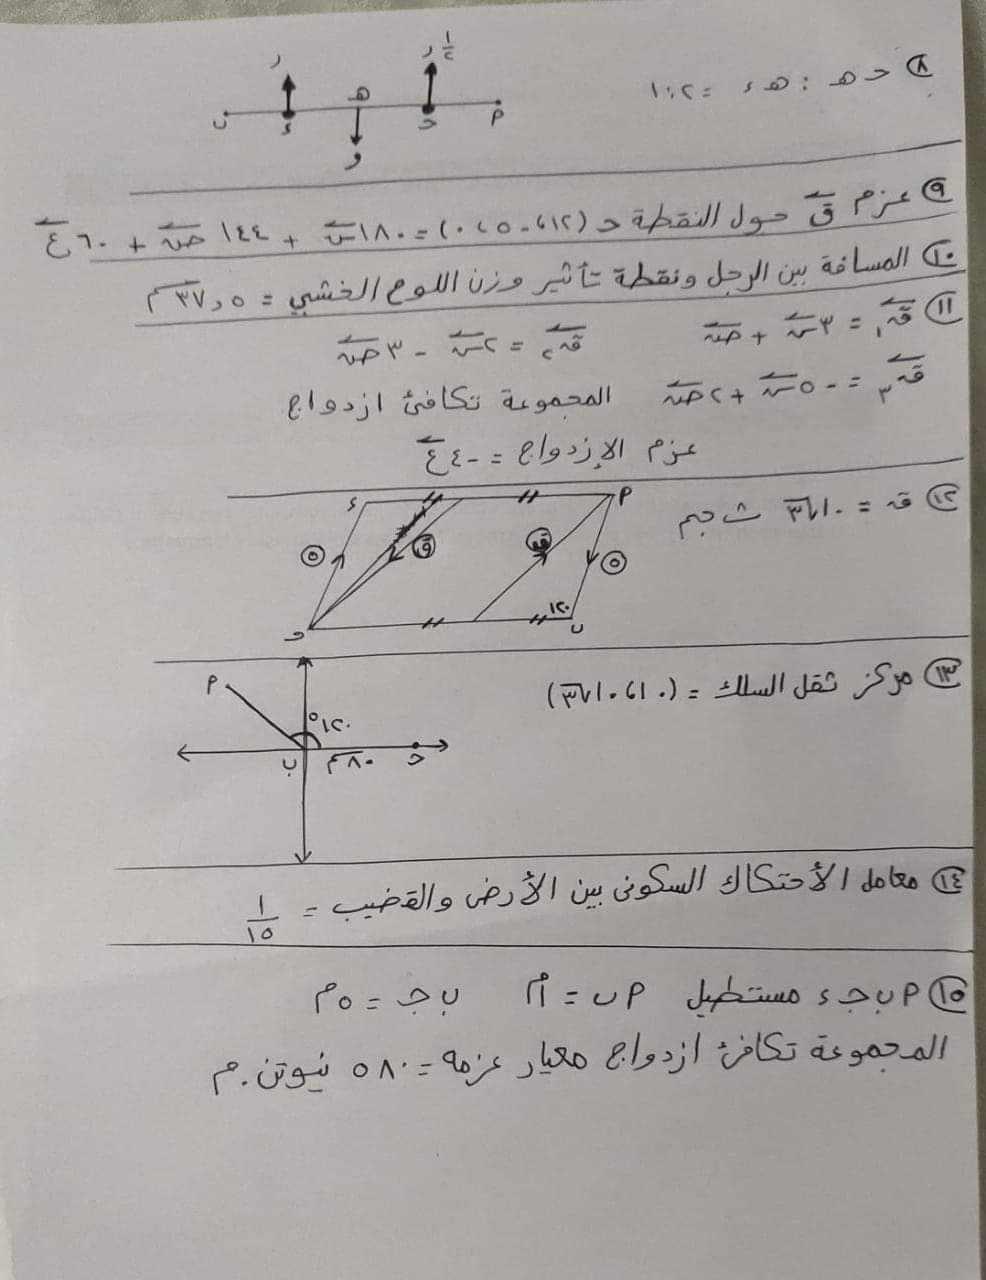 ٨ حـ هـ : هـ ء = ٢ : ١
ر
١/٢ ر
ب ء هـ حـ م
و
٩ عزم ق حول النقطة حـ (١٢، -٥، ٠) = ١٨٠ س + ١٤٤ ص + ٦٠ ع
١٠ المسافة بين الرجل ونقطة تأثير وزن اللوح الخشبي = ٣٧٫٥ سم
١١ ق١ = ٣ س + ص ق٢ = ٢ س - ٣ ص
ق٣ = -٥ س + ٢ ص المجموعة تكافئ ازدواج
عزم الإزدواج = -٤ ع
١٢ ق = ١٠√٣ ث جم
ء م
٥ ق ق ٥
١٢٠
حـ ب
١٣ مركز ثقل السلك = (١٠، ١٠√٣)
م
١٢٠°
ب ٨٠ سم حـ
١٤ معامل الأحتكاك السكونى بين الأرض والقضيب = ١/١٥
١٥ م ب جـ ء مستطيل م ب = ٦م ب جـ = ٥م
المجموعة تكافئ ازدواج معيار عزمه = ٥٨٠ نيوتن.م